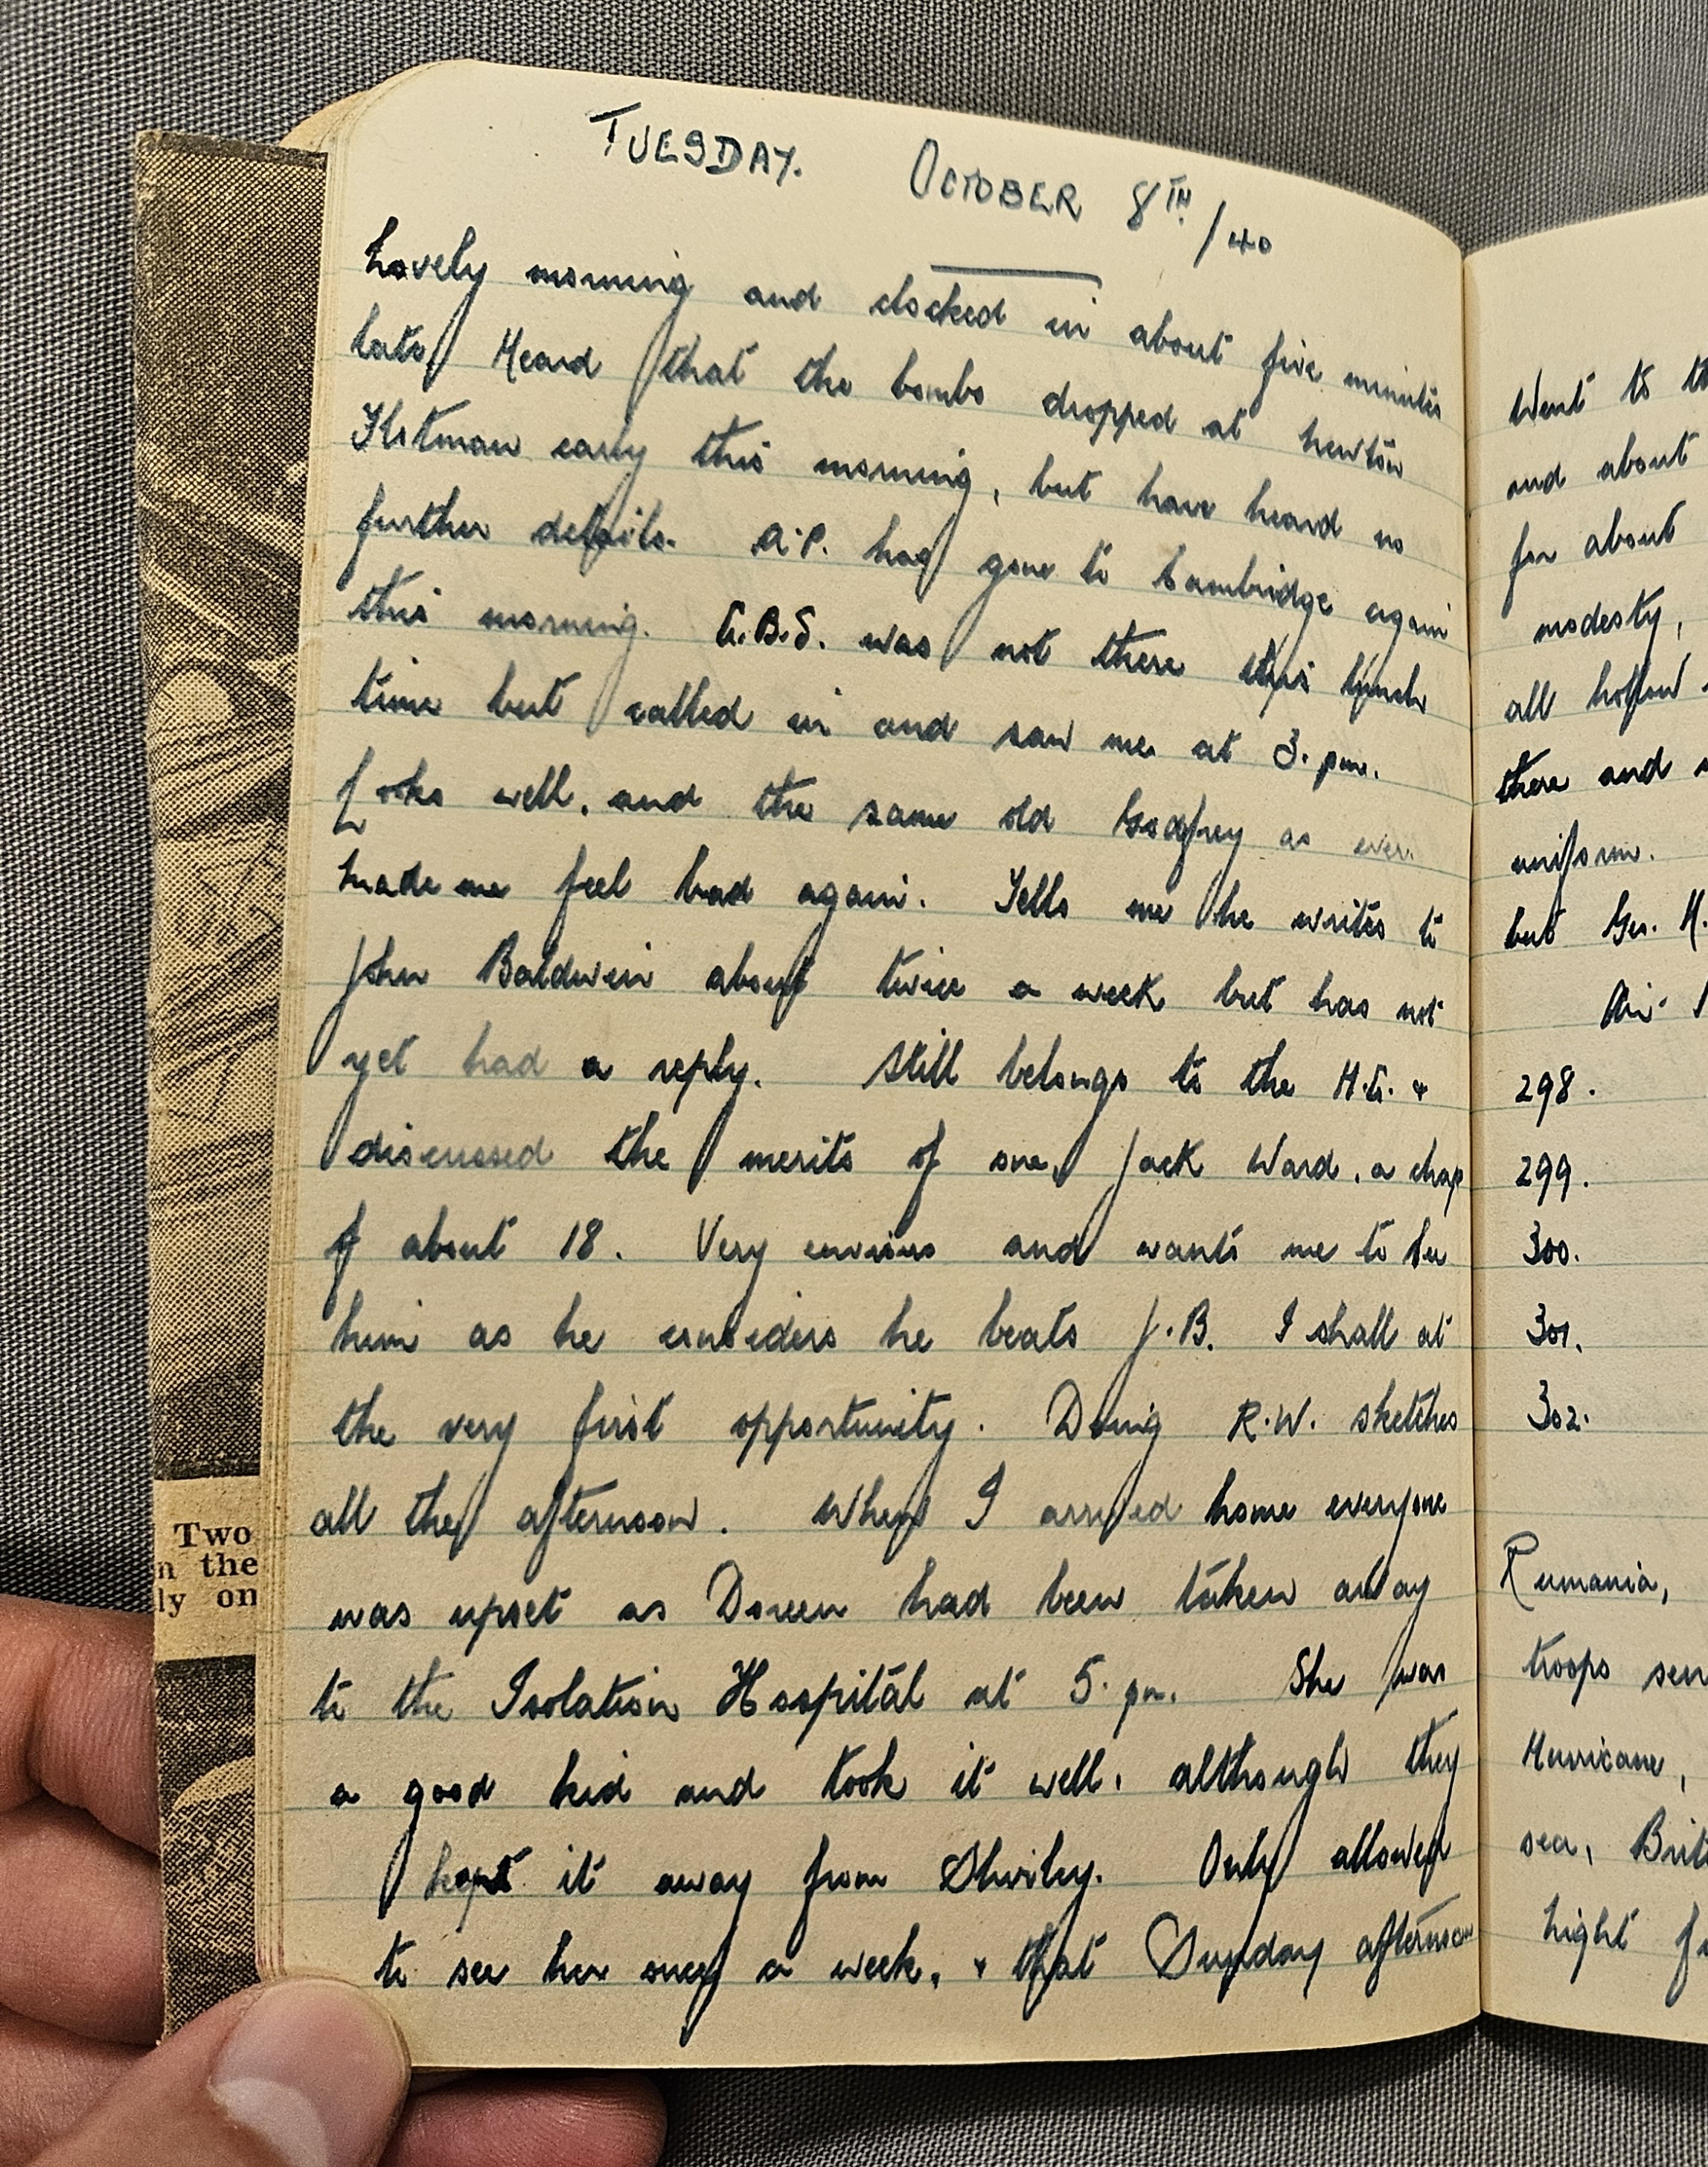 TUESDAY. OCTOBER 8TH/40
Lovely morning and clocked in about five minutes
late Heard that the bombs dropped at Newton
early this morning, but have heard no
further details. A.P. has gone to Cambridge again
this morning. G.B.S. was not there this lunch
time but called in and saw me at 3. pm.
Looks well, and the same old Godfrey as ever.
made me feel bad again. Tells me he writes to
John Baldwin about twice a week but has not
yet had a reply. Still belongs to the H.G. &
discussed the merits of one, Jack Ward, a chap
of about 18. Very envious and wants me to see
him as he considers he beats J.B. I shall at
the very first opportunity. Doing R.W. sketches
all the afternoon. When I arrived home everyone
was upset as Doreen had been taken away
to the Isolation Hospital at 5. pm. She was
a good kid and took it well, although they
kept it away from Shirley. Only allowed
to see her once a week, & that Sunday afternoon
Two
n the
ly on
Went to
and about
for about
modesty,
all
there and
uniform.
but Geo. H.
Air
298.
299.
300.
301.
302.
Rumania,
troops
Hurricane,
sea,
night